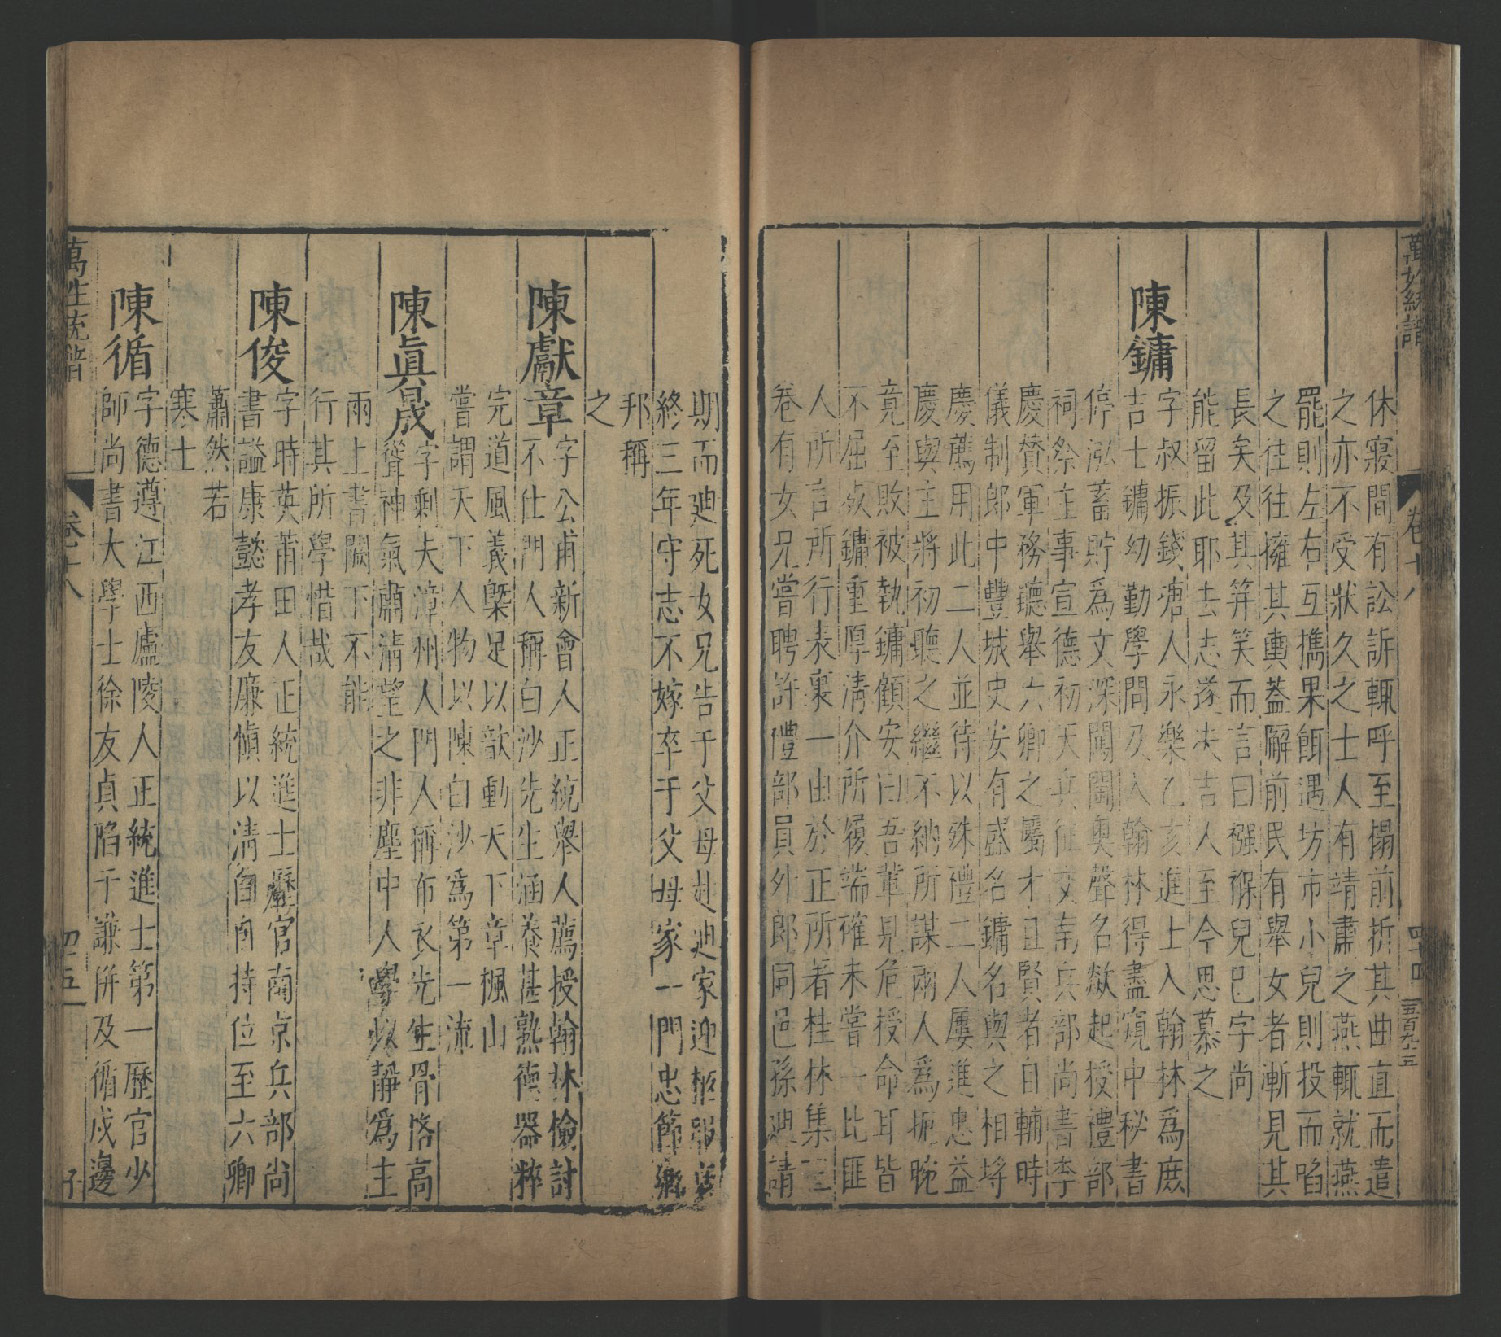 萬姓統譜
卷十八
四十四
五百九十三
休寢間有訟訴輒呼至榻前折其曲直而遣
之亦不受狀久之士人有靖肅之燕輒就燕
罷則左右互攜果餌遇坊市小兒則投而啗
之往往擁其輿蓋隬前民有舉女者漸見其
長矣及其笄笑而言曰襁褓兒巳字尚
能留此耶去志遂决吉人至今思慕之
陳鏞
字叔振錢塘人永樂乙亥進士入翰林為庶
吉士鏞幼勤學問及入翰林得盡窺中秘書
停泓蓄貯爲文深閎閎奥聲名歘起授禮部
祠祭主事宣德初天兵征交南兵部尚書李
慶贊軍務聽舉六卿之屬才且賢者自輔時
儀制郎中豐城史安有盛名鏞名與之相埒
慶薦用此二人並待以殊禮二人屢進忠益
慶與主將初聽之繼不納所謀兩人爲扼腕
竟至敗被執鏞顧安曰吾輩見危授命耳皆
不屈殁鏞重厚清介所履端確未嘗一比匪
人所言所行表裏一由於正所著桂林集三
卷有女兄嘗聘許禮部員外郎同邑孫廸請
期而廸死女兄告于父母赴廸家迎柩歸葬
終三年守志不嫁卒于父母家一門忠節
邦稱
之
陳獻章
字公甫新會人正統舉人薦授翰林檢討
不仕門人稱白沙先生涵養甚熟德器粹
完道風義槩足以歆動天下章楓山
嘗謂天下人物以陳白沙爲第一流
陳眞晟
字剩夫漳州人門人稱布衣先生骨格高
聳神氣肅清望之非塵中人學以靜爲主
兩上書闕下不能
行其所學惜哉
陳俊
字時英莆田人正統進士歷官南京兵部尚
書謚康懿孝友廉愼以清自持位至六卿
蕭然若
寒士
陳循
字德遵江西廬陵人正統進士第一歷官少
師尚書大學士徐友貞陷于謙併及循戍邊
萬姓統譜
卷十八
四十五